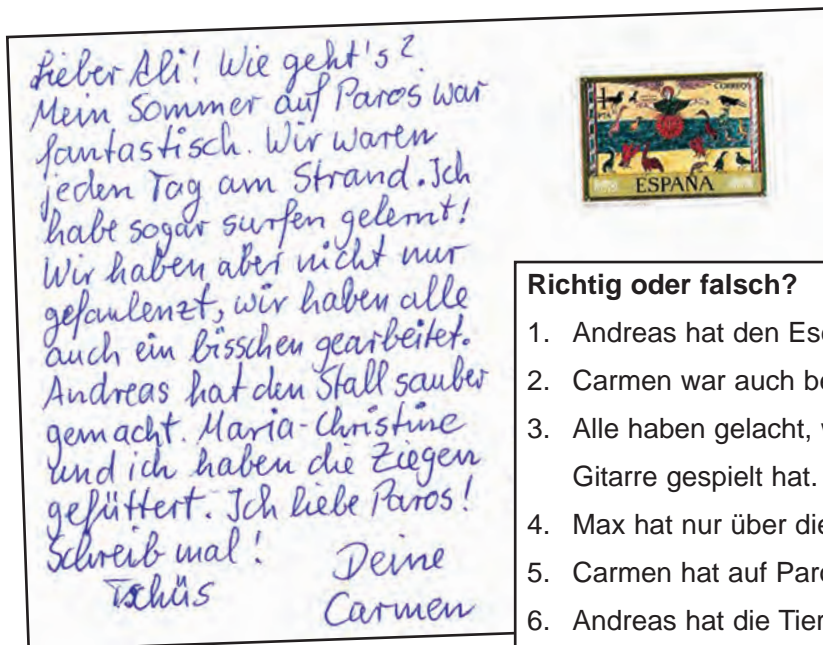 Lieber Ali! Wie geht's?
Mein Sommer auf Paros war
fantastisch. Wir waren
jeden Tag am Strand. Ich
habe sogar surfen gelernt!
Wir haben aber nicht nur
gefaulenzt, wir haben alle
auch ein bisschen gearbeitet.
Andreas hat den Stall sauber
gemacht. Maria-Christine
und ich haben die Ziegen
gefüttert. Ich liebe Paros!
Schreib mal!
Tschüs
Deine
Carmen
CORREOS
1
PTA
ESPAÑA
Richtig oder falsch?
1. Andreas hat den
2. Carmen war auch
3. Alle haben gelacht,
Gitarre gespielt hat.
4. Max hat nur über
5. Carmen hat auf
6. Andreas hat die